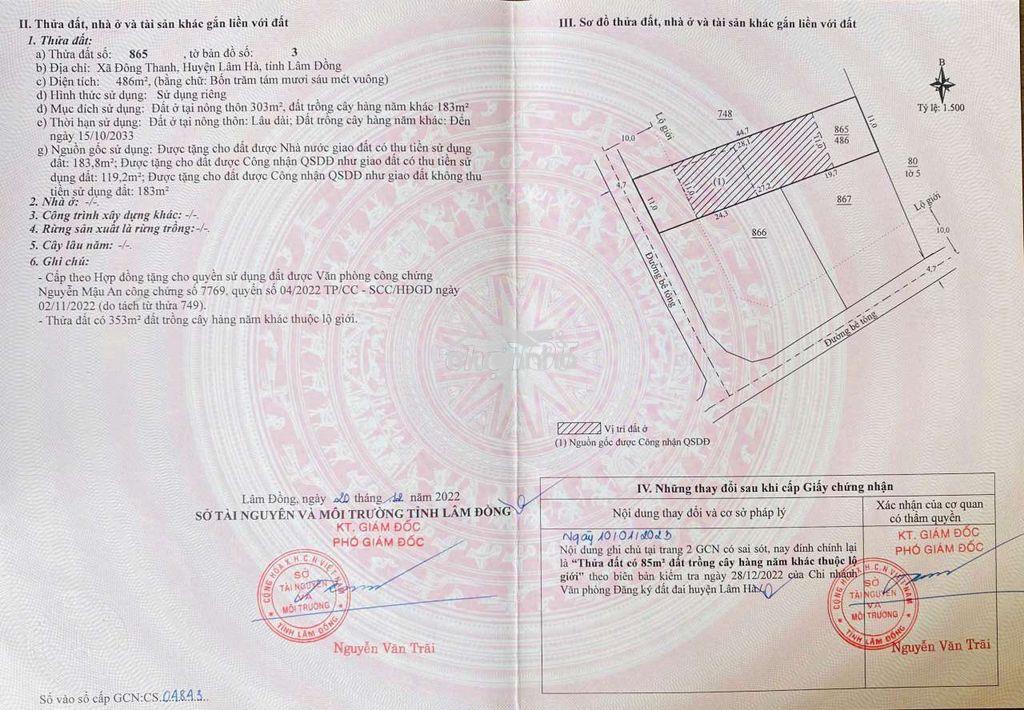 II. Thửa đất, nhà ở và tài sản khác gắn liền với đất
1. Thửa đất:
a) Thửa đất số: 865 , tờ bản đồ số: 3
b) Địa chỉ: Xã Đông Thanh, Huyện Lâm Hà, tỉnh Lâm Đồng
c) Diện tích: 486m², (bằng chữ: Bốn trăm tám mươi sáu mét vuông)
d) Hình thức sử dụng: Sử dụng riêng
đ) Mục đích sử dụng: Đất ở tại nông thôn 303m², đất trồng cây hàng năm khác 183m²
e) Thời hạn sử dụng: Đất ở tại nông thôn: Lâu dài; Đất trồng cây hàng năm khác: Đến
ngày 15/10/2033
g) Nguồn gốc sử dụng: Được tặng cho đất được Nhà nước giao đất có thu tiền sử dụng
đất: 183,8m²; Được tặng cho đất được Công nhận QSDĐ như giao đất có thu tiền sử
dụng đất: 119,2m²; Được tặng cho đất được Công nhận QSDĐ như giao đất không thu
tiền sử dụng đất: 183m²
2. Nhà ở: -/-
3. Công trình xây dựng khác: -/-.
4. Rừng sản xuất là rừng trồng:-/-.
5. Cây lâu năm: -/-.
6. Ghi chú:
- Cấp theo Hợp đồng tặng cho quyền sử dụng đất được Văn phòng công chứng
Nguyễn Mậu An công chứng số 7769, quyển số 04/2022 TP/CC - SCC/HĐGD ngày
02/11/2022 (do tách từ thửa 749).
- Thửa đất có 353m² đất trồng cây hàng năm khác thuộc lộ giới.
Lâm Đồng, ngày 20 tháng 12 năm 2022
SỞ TÀI NGUYÊN VÀ MÔI TRƯỜNG TỈNH LÂM ĐỒNG
KT. GIÁM ĐỐC
PHÓ GIÁM ĐỐC
CỘNG HÒA X.H.C.N VIỆT NAM
SỞ
TÀI NGUYÊN
VÀ
MÔI TRƯỜNG
TỈNH LÂM ĐỒNG
Nguyễn Văn Trãi
Số vào sổ cấp GCN:CS.04843..
III. Sơ đồ thửa đất, nhà ở và tài sản khác gắn liền với đất
B
Tỷ lệ: 1.500
748
Lộ giới
10,0
44,7
28,1
11,0
865
486
11,0
80
tờ 5
4,7
11,0
11,0
(1)
27,2
19,7
24,3
867
866
Lộ giới
10,0
4,7
Đường bê tông
Đường bê tông
Vị trí đất ở
(1) Nguồn gốc được Công nhận QSDĐ
chợ Tốt
IV. Những thay đổi sau khi cấp Giấy chứng nhận
Nội dung thay đổi và cơ sở pháp lý
Xác nhận của cơ quan
có thẩm quyền
Ngày 10/01/2023
Nội dung ghi chú tại trang 2 GCN có sai sót, nay đính chính lại
là "Thửa đất có 85m² đất trồng cây hàng năm khác thuộc lộ
giới" theo biên bản kiểm tra ngày 28/12/2022 của Chi nhánh
Văn phòng Đăng ký đất đai huyện Lâm Hà./.
KT. GIÁM ĐỐC
PHÓ GIÁM ĐỐC
CỘNG HÒA X.H.C.N VIỆT NAM
SỞ
TÀI NGUYÊN
VÀ
MÔI TRƯỜNG
TỈNH LÂM ĐỒNG
Nguyễn Văn Trãi